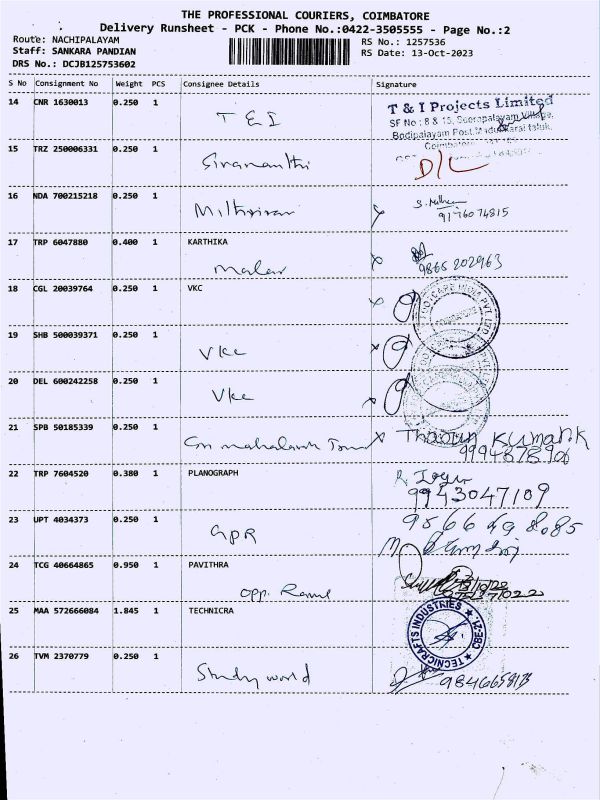 THE PROFESSIONAL COURIERS, COIMBATORE
Delivery Runsheet - PCK - Phone No.:0422-3505555 - Page No.:2
Route: NACHIPALAYAM
Staff: SANKARA PANDIAN
DRS No.: DCJB125753602
RS No.: 1257536
RS Date: 13-Oct-2023
S No Consignment No Weight PCS Consignee Details Signature
14 CNR 1630013 0.250 1 T & I
T & I Projects Limited
SF No : 8 & 15, Seerapalayam Village,
Bodipalayam Post, Madukkarai taluk,
Coimbatore
15 TRZ 250006331 0.250 1 Sivananthi D/L
16 NDA 700215218 0.250 1 Mithriran
9176074815
17 TRP 6047880 0.400 1 KARTHIKA
Malar
9865 202963
18 CGL 20039764 0.250 1 VKC
19 SHB 500039371 0.250 1 Vkc
20 DEL 600242258 0.250 1 Vkc
21 SPB 50185339 0.250 1 x Kumar.K
22 TRP 7604520 0.380 1 PLANOGRAPH
9943047109
23 UPT 4034373 0.250 1 GPR
24 TCG 40664865 0.950 1 PAVITHRA
opp.
25 MAA 572666084 1.845 1 TECHNICRA
TECNICRAFTS INDUSTRIES CBE-21
26 TVM 2370779 0.250 1 Study world